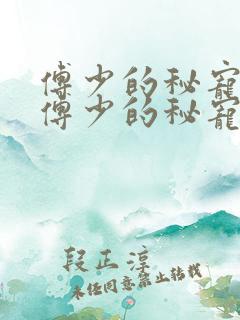 傅少的秘宠
傅少的秘宠
段正淳
未经同意禁止转载